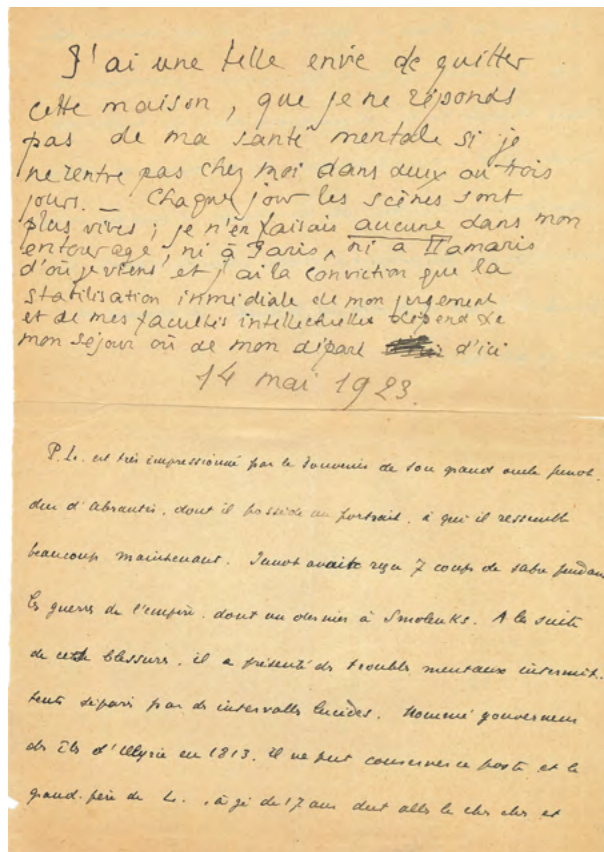 J'ai une telle envie de quitter
cette maison, que je ne réponds
pas de ma santé mentale si je
ne rentre pas chez moi dans deux ou trois
jours. _ Chaque jour les scènes sont
plus vives ; je n'en faisais aucune dans mon
entourage, ni à Paris, ni a Tamaris
d'où je viens et j'ai la conviction que la
stabilisation immédiate de mon jugement
et de mes facultés intellectuelles dépend de
mon séjour où de mon départ d'ici
14 mai 1923.
P. L. est très impressionné par le souvenir de son grand oncle Junot.
duc d'Abrantès, dont il possède un portrait, à qui il ressemble
beaucoup maintenant. Junot avait reçu 7 coups de sabre pendant
les guerres de l'empire, dont un dernier à Smolenks. A la suite
de cette blessure, il a présenté des troubles mentaux intermit-
tents séparés par des intervalles lucides. Nommé gouverneur
des Iles d'Illyrie en 1813, il ne put conserver ce poste et le
grand-père de L., âgé de 17 ans dut aller le chercher et